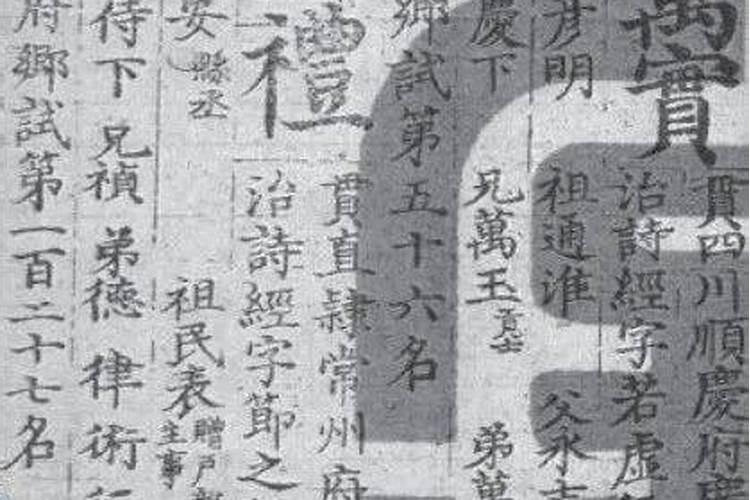 萬實
貫四川順慶府廣
治詩經字若虛
彥明 祖通淮 父永
慶下 兄萬玉貢士 弟萬
鄉試第五十六名
貫直隸常州府
禮 治詩經字節之
安縣丞 祖民表贈戶部主事
侍下 兄禎 弟德 律 術
府鄉試第一百二十七名